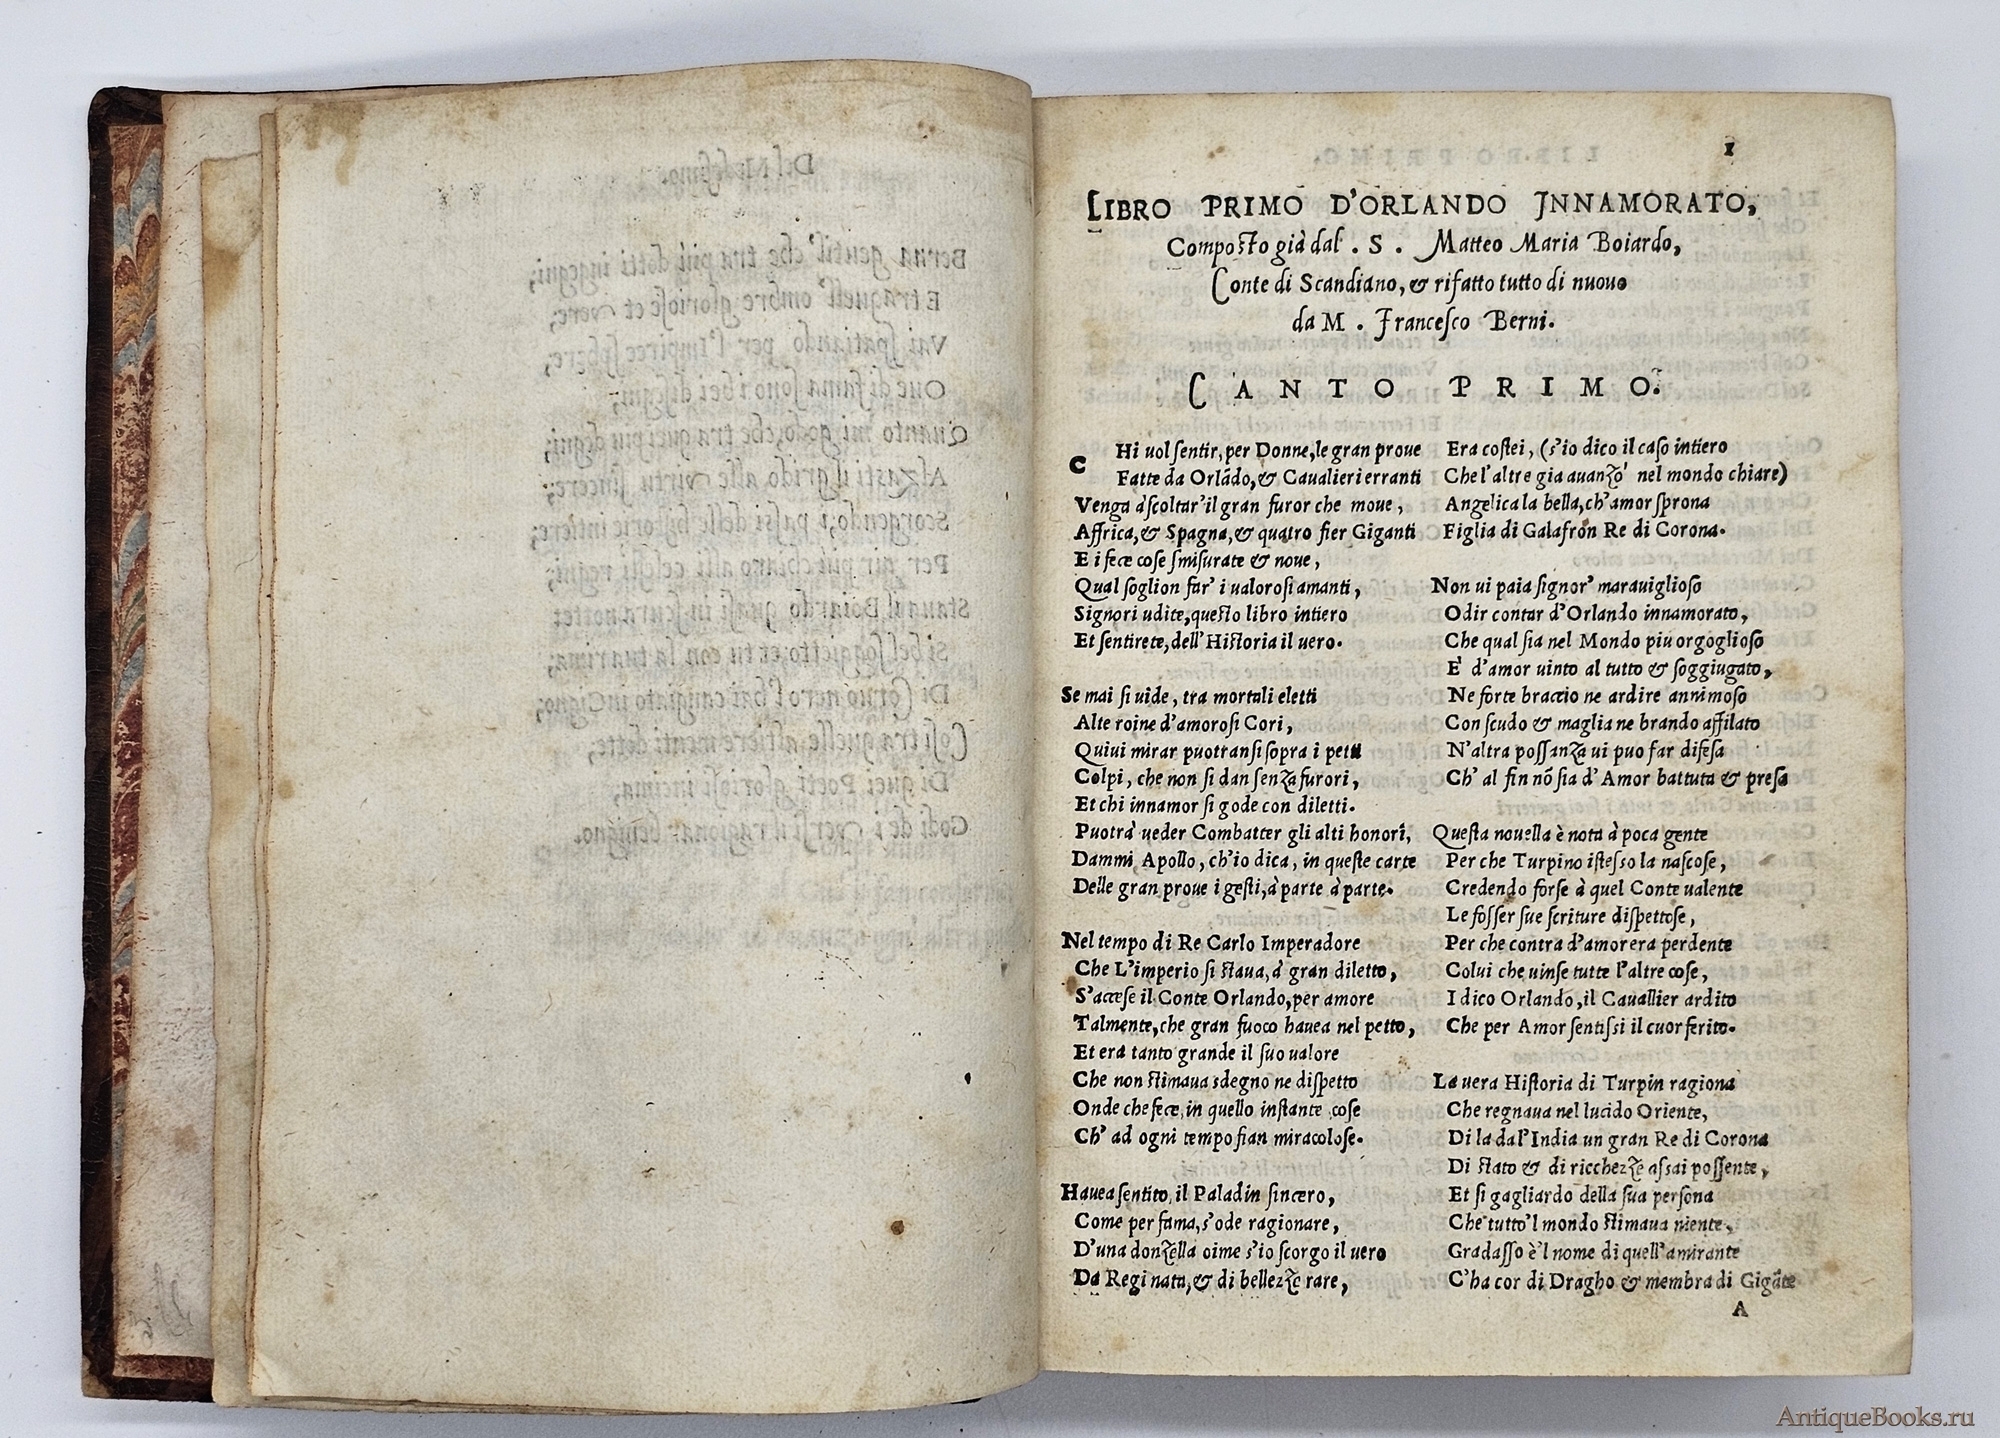 1
LIBRO PRIMO D'ORLANDO INNAMORATO,
Composto già dal . S . Matteo Maria Boiardo,
Conte di Scandiano, & rifatto tutto di nuouo
da M . Francesco Berni.
CANTO PRIMO.
CHi uol sentir, per Donne, le gran proue
Fatte da Orlãdo, & Caualieri erranti
Venga àscoltar'il gran furor che moue,
Affrica, & Spagna, & quatro fier Giganti
E i fece cose smisurate & noue,
Qual soglion far' i ualorosi amanti,
Signori udite, questo libro intiero
Et sentirete, dell' Historia il uero.
Se mai si uide, tra mortali eletti
Alte roine d'amorosi Cori,
Quiui mirar puotransi sopra i petti
Colpi, che non si dan senza furori,
Et chi innamor si gode con diletti.
Puotrà ueder Combatter gli alti honori,
Dammi Apollo, ch'io dica, in queste carte
Delle gran proue i gesti, à parte à parte.
Nel tempo di Re Carlo Imperadore
Che L'imperio si staua, à gran diletto,
S'accese il Conte Orlando, per amore
Talmente, che gran fuoco hauea nel petto,
Et era tanto grande il suo ualore
Che non stimaua sdegno ne dispetto
Onde che fece, in quello instante cose
Ch' ad ogni tempo fian miracolose.
Hauea sentito, il Paladin sincero,
Come per fama, s'ode ragionare,
D'una donzella oime s'io scorgo il uero
Da Regi nata, & di bellezze rare,
Era costei, (s'io dico il caso intiero
Che l'altre gia auanzò nel mondo chiare)
Angelica la bella, ch'amor sprona
Figlia di Galafron Re di Corona.
Non ui paia signor' marauiglioso
Odir contar d'Orlando innamorato,
Che qual sia nel Mondo piu orgoglioso
E' d'amor uinto al tutto & soggiugato,
Ne forte braccio ne ardire annimoso
Con scudo & maglia ne brando affilato
N'altra possanza ui puo far difesa
Ch' al fin nõ sia d' Amor battuta & presa
Questa nouella è nota à poca gente
Per che Turpino istesso la nascose,
Credendo forse à quel Conte ualente
Le fosser sue scriture dispettose,
Per che contra d'amor era perdente
Colui che uinse tutte l'altre cose,
I dico Orlando, il Cauallier ardito
Che per Amor sentissi il cuor ferito.
La uera Historia di Turpin ragiona
Che regnaua nel lucido Oriente,
Di la dal' India un gran Re di Corona
Di stato & di ricchezze assai possente,
Et si gagliardo della sua persona
Che tutto'l mondo stimaua niente,
Gradasso è'l nome di quell'amirante
C'ha cor di Dragho & membra di Gigãte
A
AntiqueBooks.ru